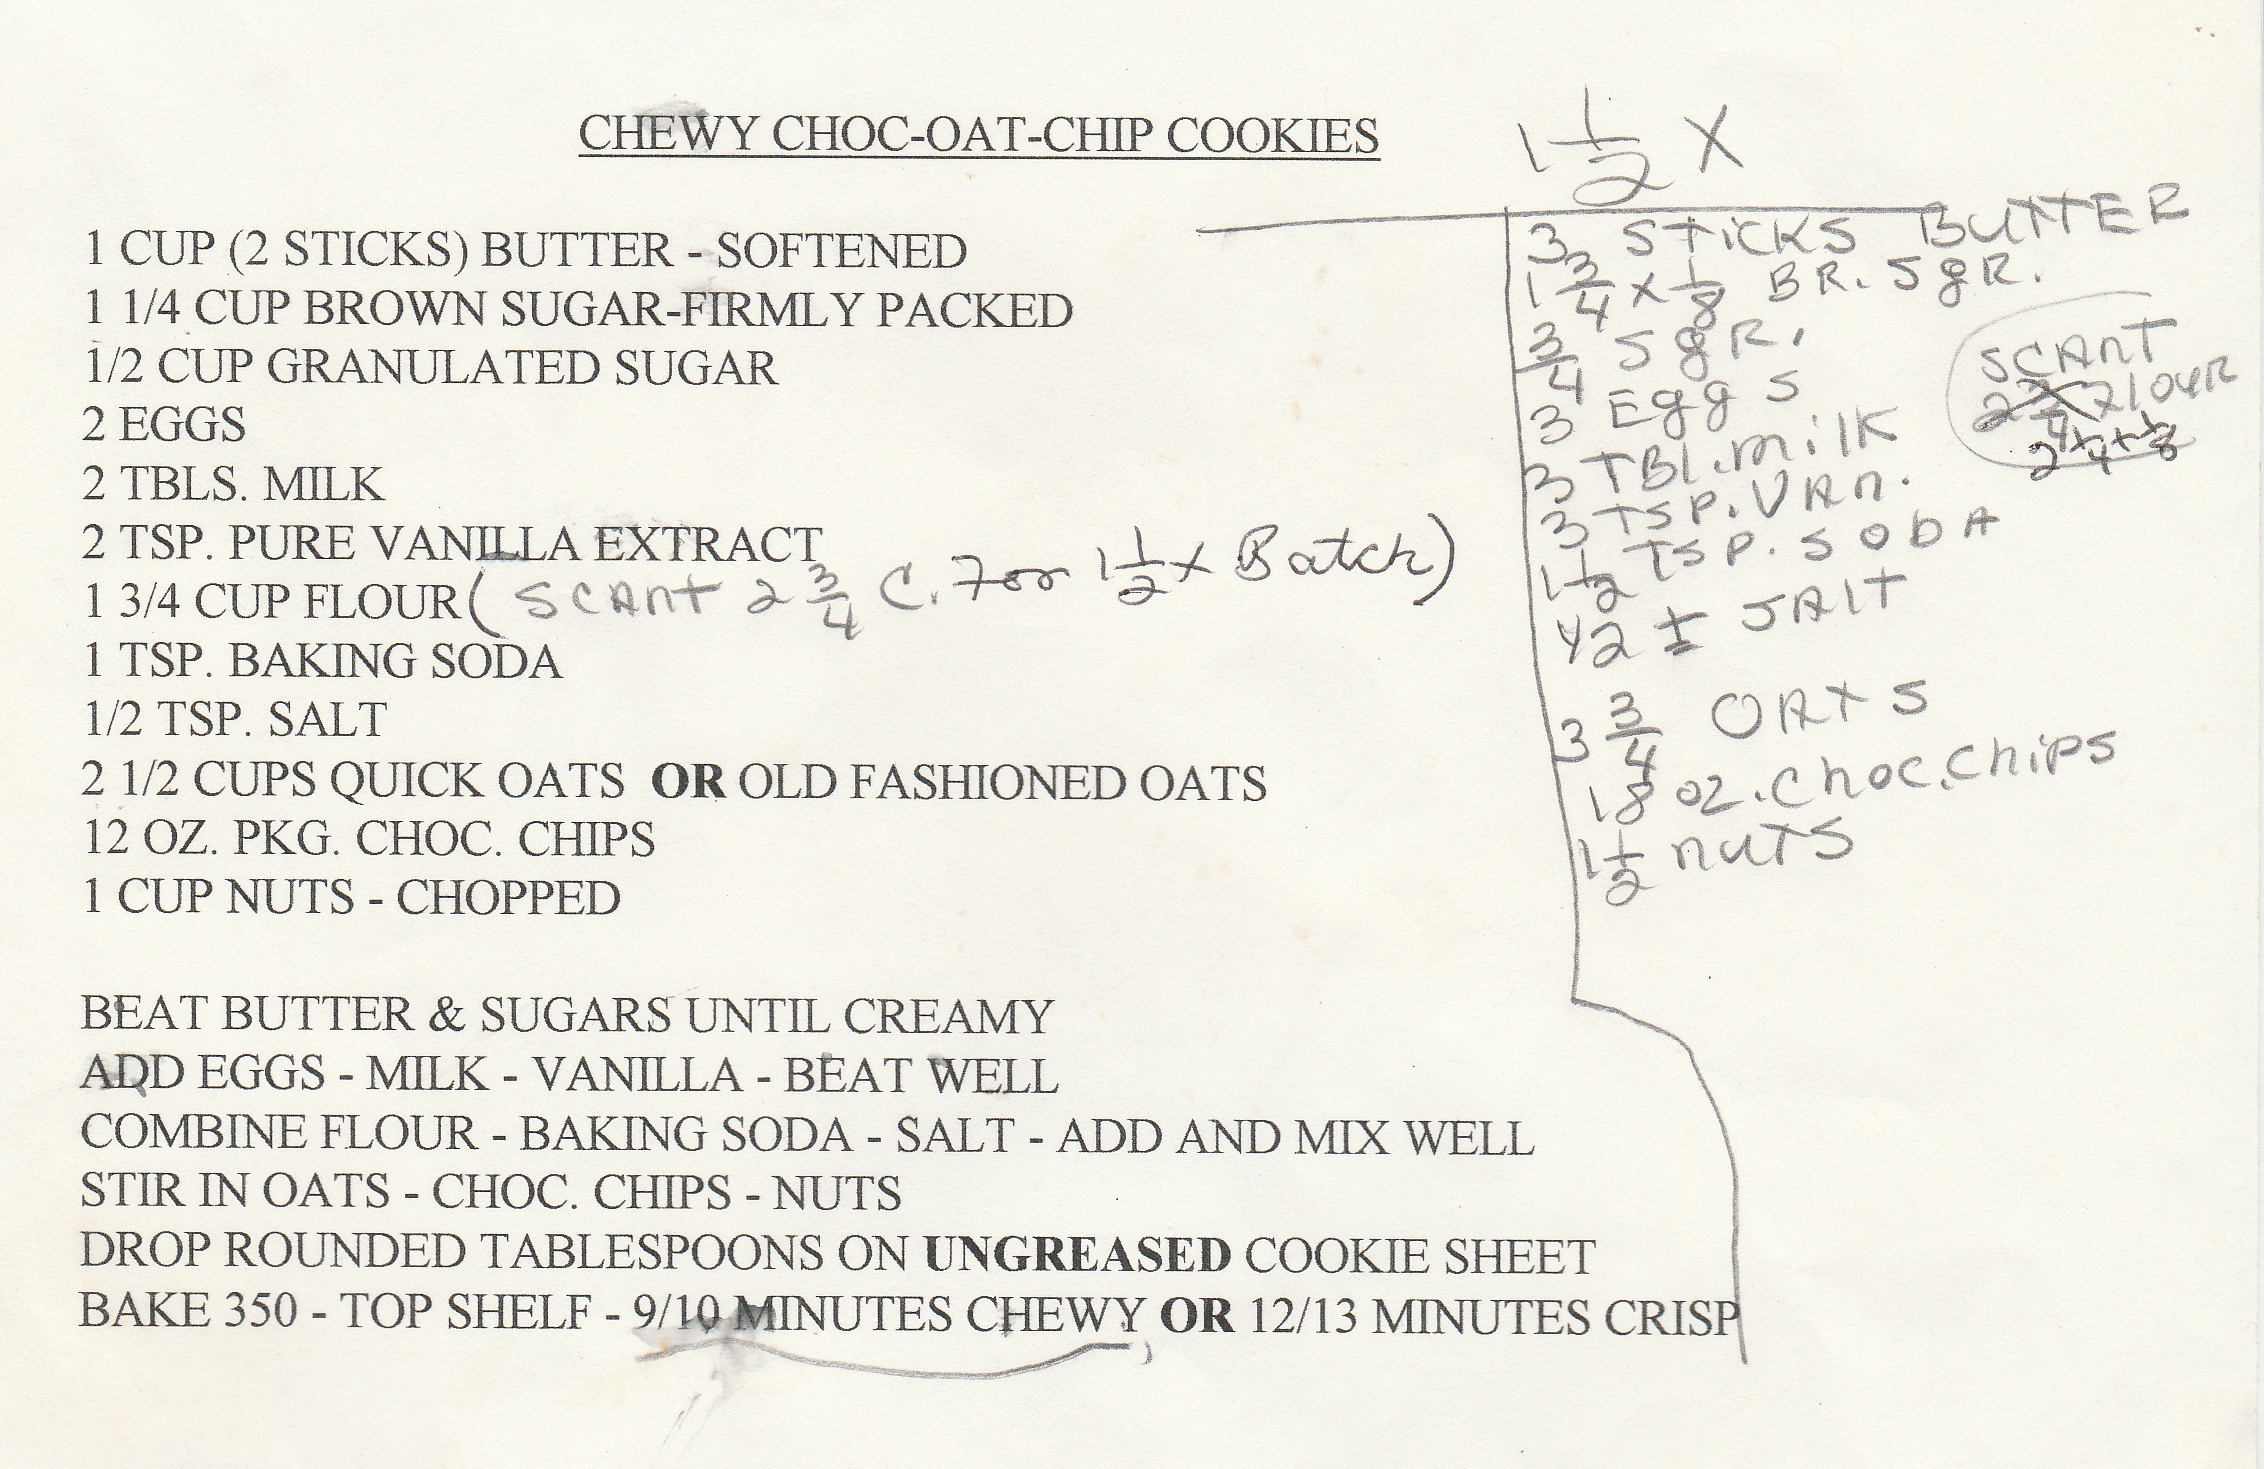 CHEWY CHOC-OAT-CHIP COOKIES
1 CUP (2 STICKS) BUTTER - SOFTENED
1 1/4 CUP BROWN SUGAR-FIRMLY PACKED
1/2 CUP GRANULATED SUGAR
2 EGGS
2 TBLS. MILK
2 TSP. PURE VANILLA EXTRACT
1 3/4 CUP FLOUR (SCANT 2 3/4 C. For 1 1/2 x Batch)
1 TSP. BAKING SODA
1/2 TSP. SALT
2 1/2 CUPS QUICK OATS OR OLD FASHIONED OATS
12 OZ. PKG. CHOC. CHIPS
1 CUP NUTS - CHOPPED
BEAT BUTTER & SUGARS UNTIL CREAMY
ADD EGGS - MILK - VANILLA - BEAT WELL
COMBINE FLOUR - BAKING SODA - SALT - ADD AND MIX WELL
STIR IN OATS - CHOC. CHIPS - NUTS
DROP ROUNDED TABLESPOONS ON UNGREASED COOKIE SHEET
BAKE 350 - TOP SHELF - 9/10 MINUTES CHEWY OR 12/13 MINUTES CRISP
1 1/2 X
3 STICKS BUTTER
1 3/4 x 1/8 BR. SgR.
3/4 SgR.
3 Eggs
3 TBl. milk
3 TSP. VAn.
1 1/2 TSP. SODA
1/2 ± SAlT
3 3/4 OATS
18 oz. Choc. Chips
1 1/2 nuTS
SCAnT
2 3/4 FlOUR
2 1/4 + 1/8